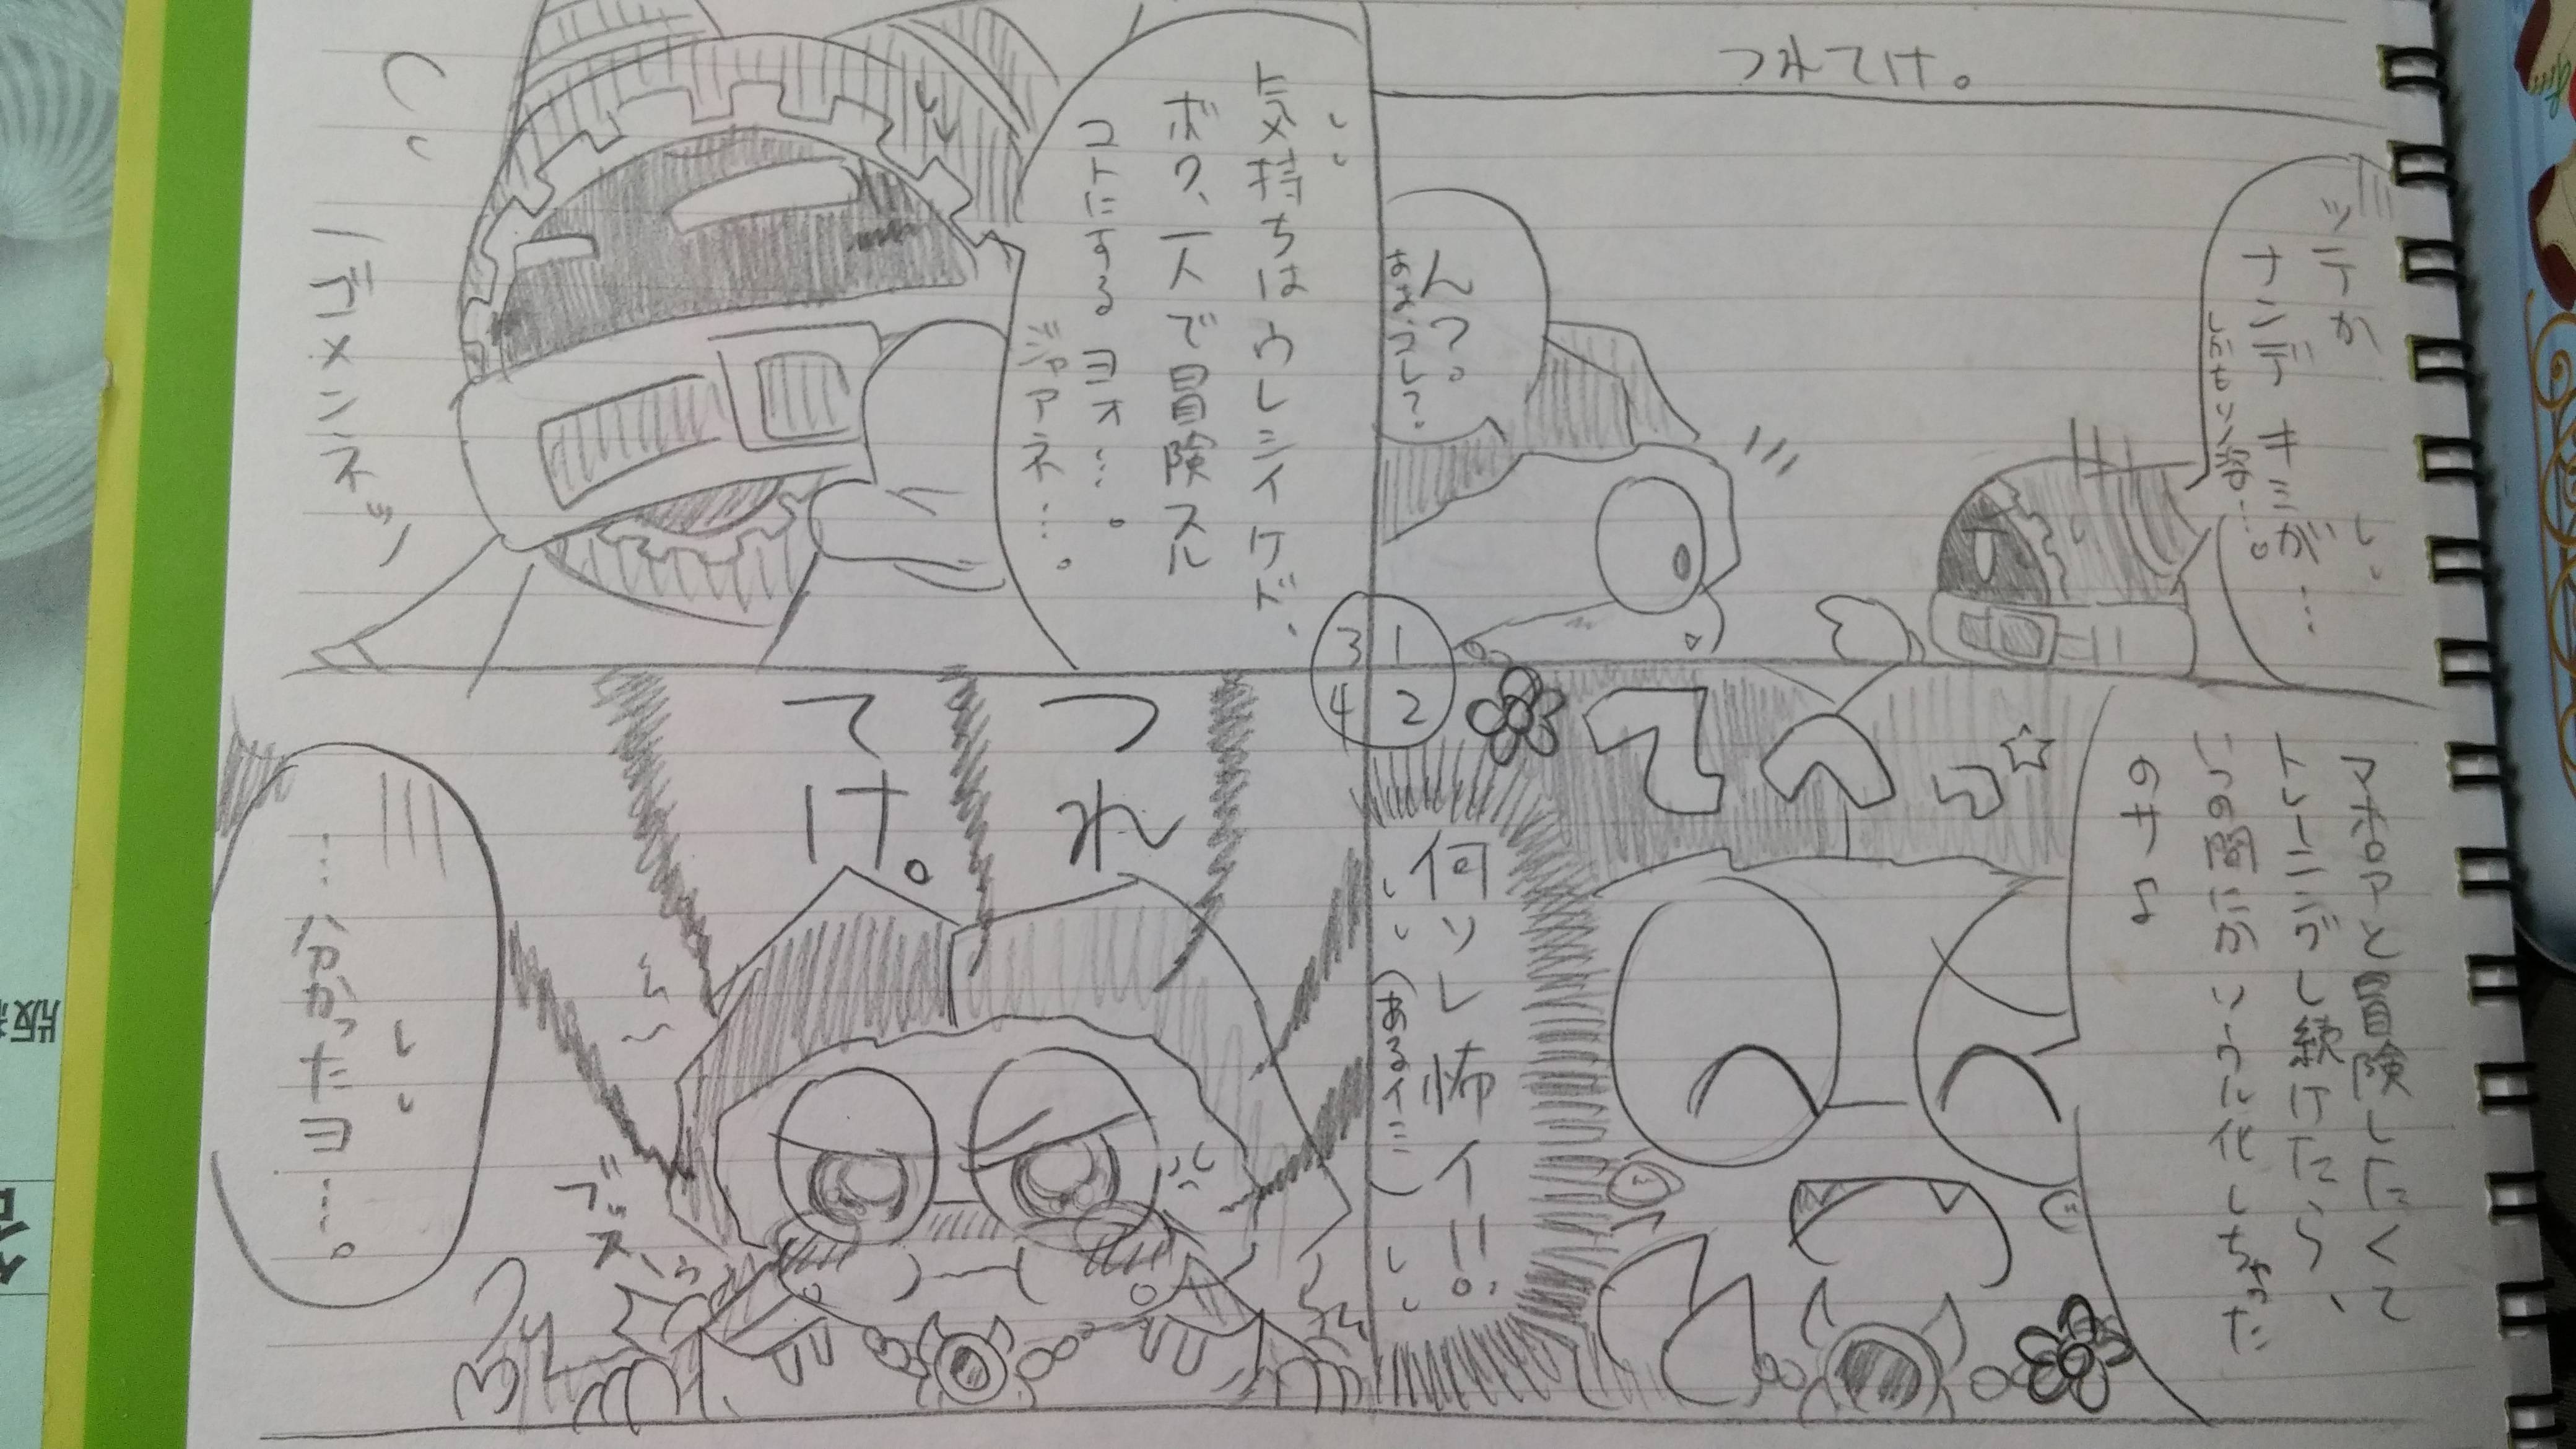 つれてけ。
ッテか
ナンデ キミが…
しかもソノ姿…。
んっ。
おお、コレ?
1
2
3
4
マホロアと冒険したくて
トレーニングし続けたら、
いつの間にかソウル化しちゃった
のサ♪
てへっ☆
何ソレ怖イ!!
(あるイミ)
気持ちはウレシイケド、
ボク、一人で冒険スル
コトにするヨォ…。
ジャアネ…。
ゴメンネッ
つれ
てけ。
ブスッ
…分かったヨ…。
版